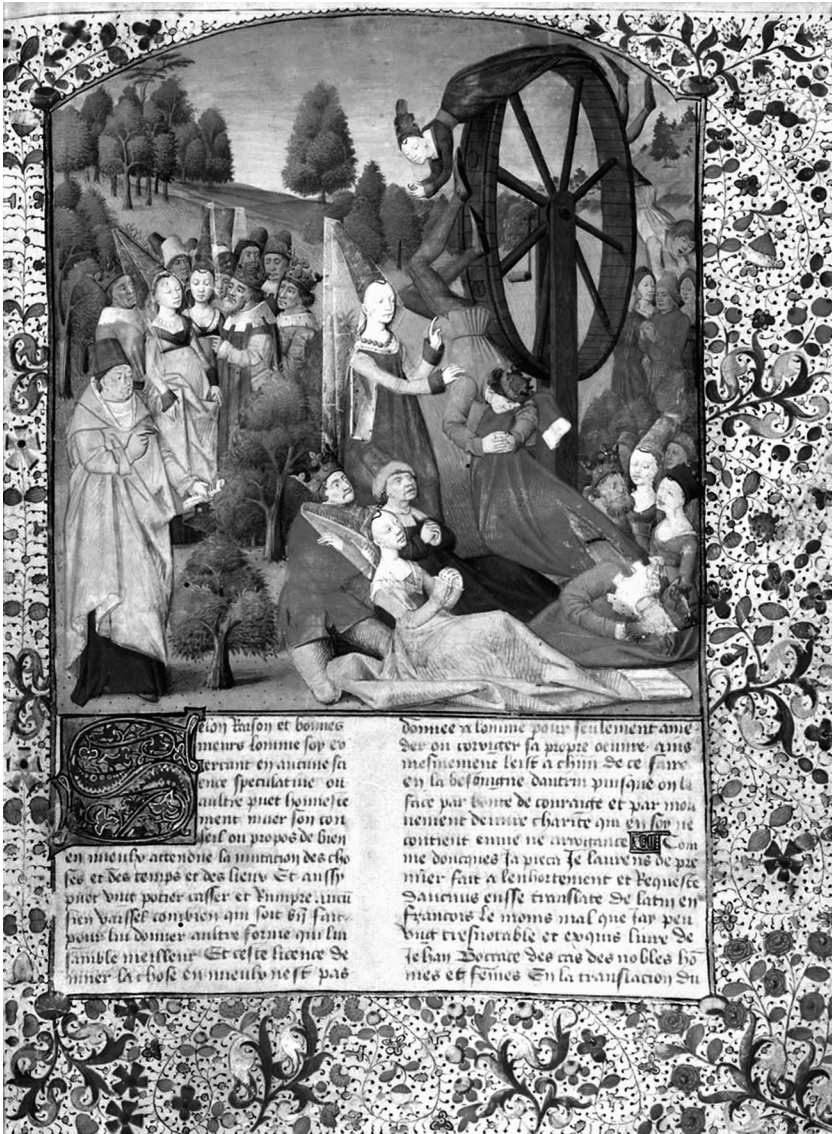 Selon Raison et bonnes
meurs lomme soy ex
ercant en aucune sci
ence speculative ou
aultre puet honneste
ment muer son con
seil ou propos de bien
en mieulx attendue la mutation des cho
ses et des temps et des lieux Et aussy
puet ung potier casser et Rompre aucū
sien vaissel combien quil soit bn̄ fait
pour lui donner aultre forme qui lui
samble meilleur Et ceste licence de
muer la chose en mieulx nest pas
donnee a lomme pour seulement ame
der ou corriger sa propre oeuvre ains
mesmement leist a chūn de ce faire
en la besoingne dautrui puisque on la
face par bonte de couraige et par mou
vement de vraie charite qui en soy ne
contient envie ne arrogance Com
me doncques Ja pieca Je laurens de pre
mier fait a lenhortement et Requeste
daucuns eusse translate de latin en
francois Le moins mal que jay peu
ung tresnotable et exquis livre de
Jehan Boccace des cas des nobles hō
mes et fem̄es En la translacion du